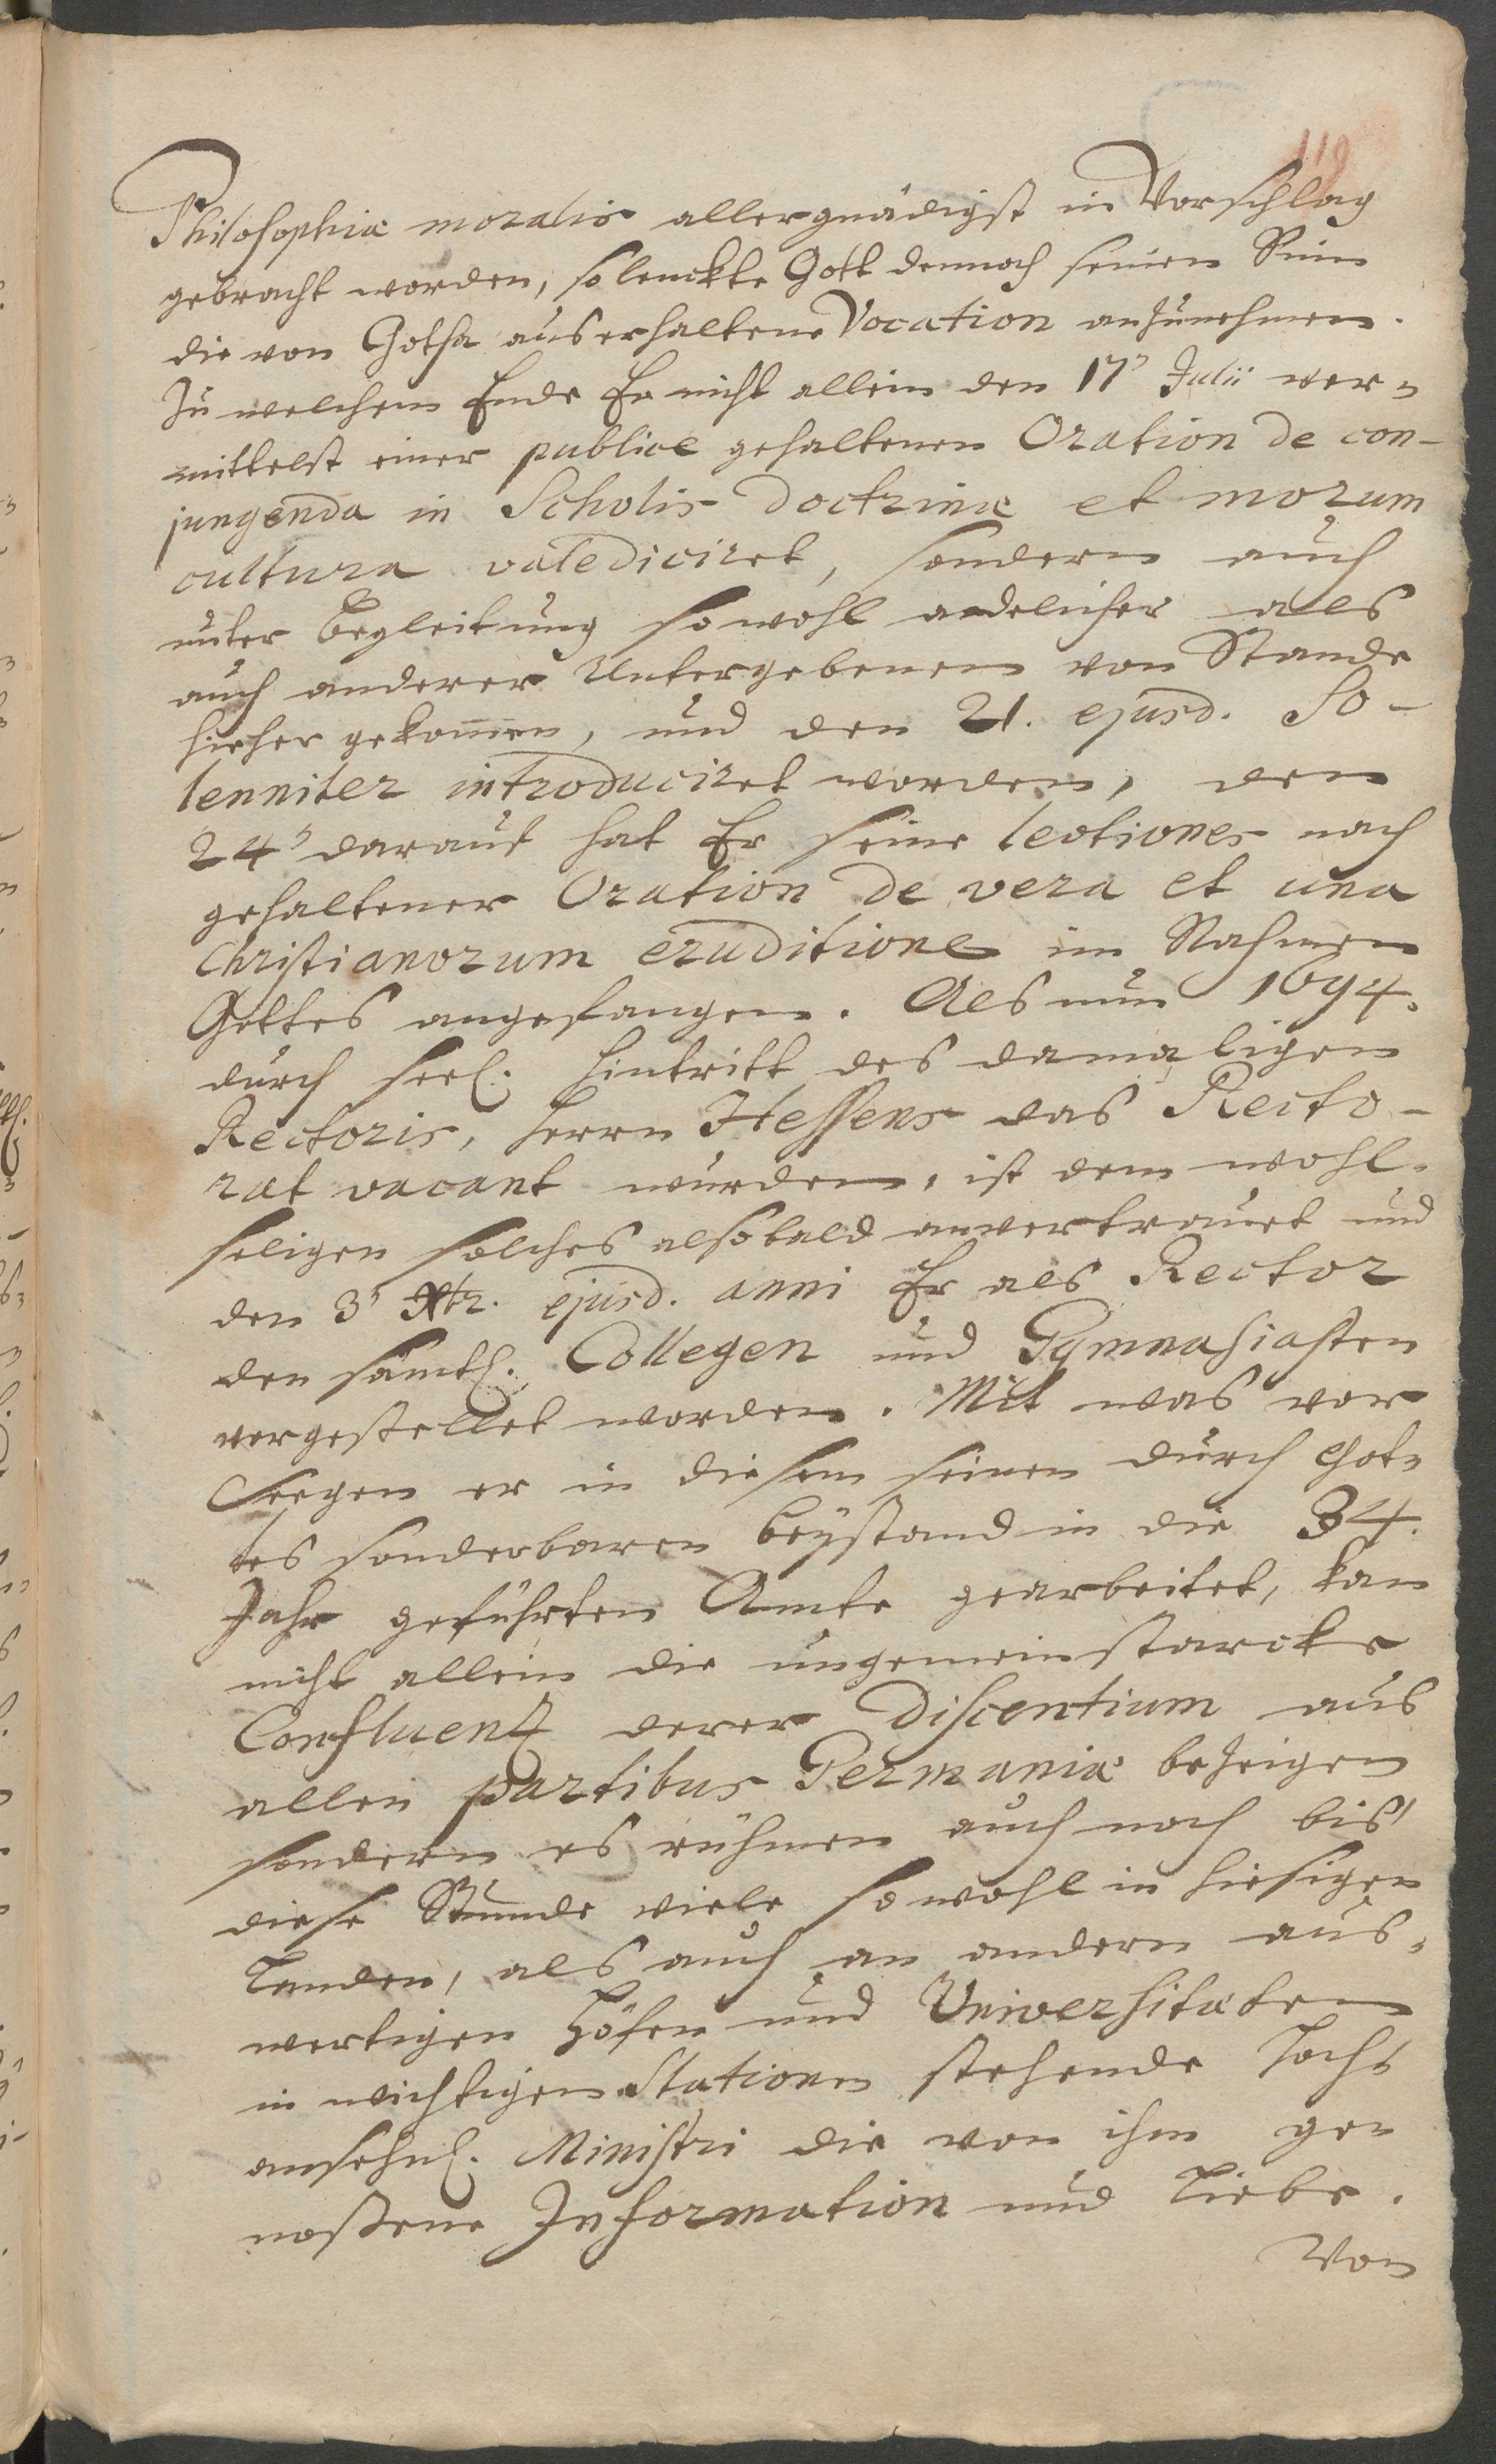 119
Philosophiæ moralis allergnädigst in Vorschlag
gebracht worden, so lenckte Gott dennoch seinen Sinn
die von Gotha aus erhaltene Vocation anzunehmen.
Zu welchem Ende Er nicht allein den 17ᵗ Julii ver-
mittelst einer publice gehaltenen Oration de con-
jungenda in Scholis doctrinæ et morum
cultura valediciret, sondern auch
unter Begleitung so wohl adelicher als
auch anderer Untergebenen von Stande
hieher gekom̄en, und den 21. ejusd. So-
lenniter introduciret worden, den
24ᵗ darauf hat Er seine lectiones nach
gehaltener Oration de vera et una
Christianorum eruditione im Nahmen
Gottes angefangen. Als nun 1694.
durch seel. Hintritt des damaligen
Rectoris, Herrn Hessens das Recto-
rat vacant wurden, ist dem wohl-
seligen solches alsobald anvertrauet und
den 3ᵗ Xbr. ejusd. anni Er als Rector
den sämtl. Collegen und Gymnasiasten
vorgestellet worden. Mit was vor
Seegen er in diesem seinen durch Got-
tes sonderbaren Beystand in die 34.
Jahr geführten Amte gearbeitet, kan
nicht allein die ungemein starcke
Confluenz derer Discentium aus
allen partibus Germaniæ bezeigen
sondern es rühmen auch noch bis
diese Stunde viele so wohl in hiesigen
Landen, als auch an andern aus-
wertigen Höfen und Universitæten
in wichtigen Stationen stehende hoch-
ansehnl. Ministri die von ihm ge-
noßene Information und Liebe.
Von